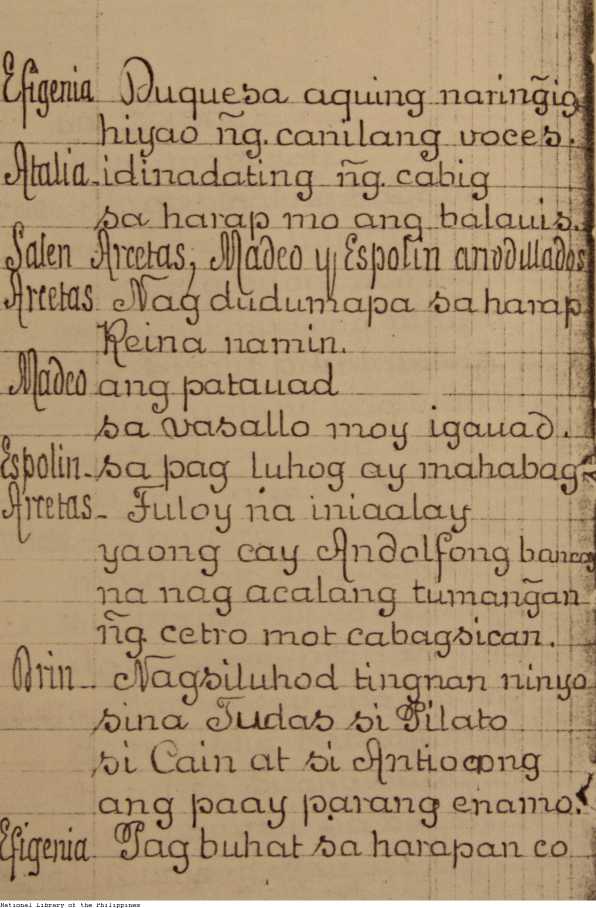 Efigenia Duquesa aquing naring̃ig
hiyao ñg. canilang voces.
Atalia-idinadating ñg. cabig
sa harap mo ang balauis.
Salen Arcetas, Madeo y Espolin arrodillados
Arcetas Nag dudumapa sa harap
Reina namin.
Madeo ang patauad
sa vasallo moy igauad.
Espolin-sa pag luhog ay mahabag
Arcetas- Tuloy na iniaalay
yaong cay Andolfong bancay
na nag acalang tumang̃an
ñg cetro mot cabagsican.
Brin-- Nagsiluhod tingnan ninyo
sina Judas si Pilato
si Cain at si Antiocong
ang paay parang enamo.
Efigenia Pag buhat sa harapan co
National Library of the Philippines